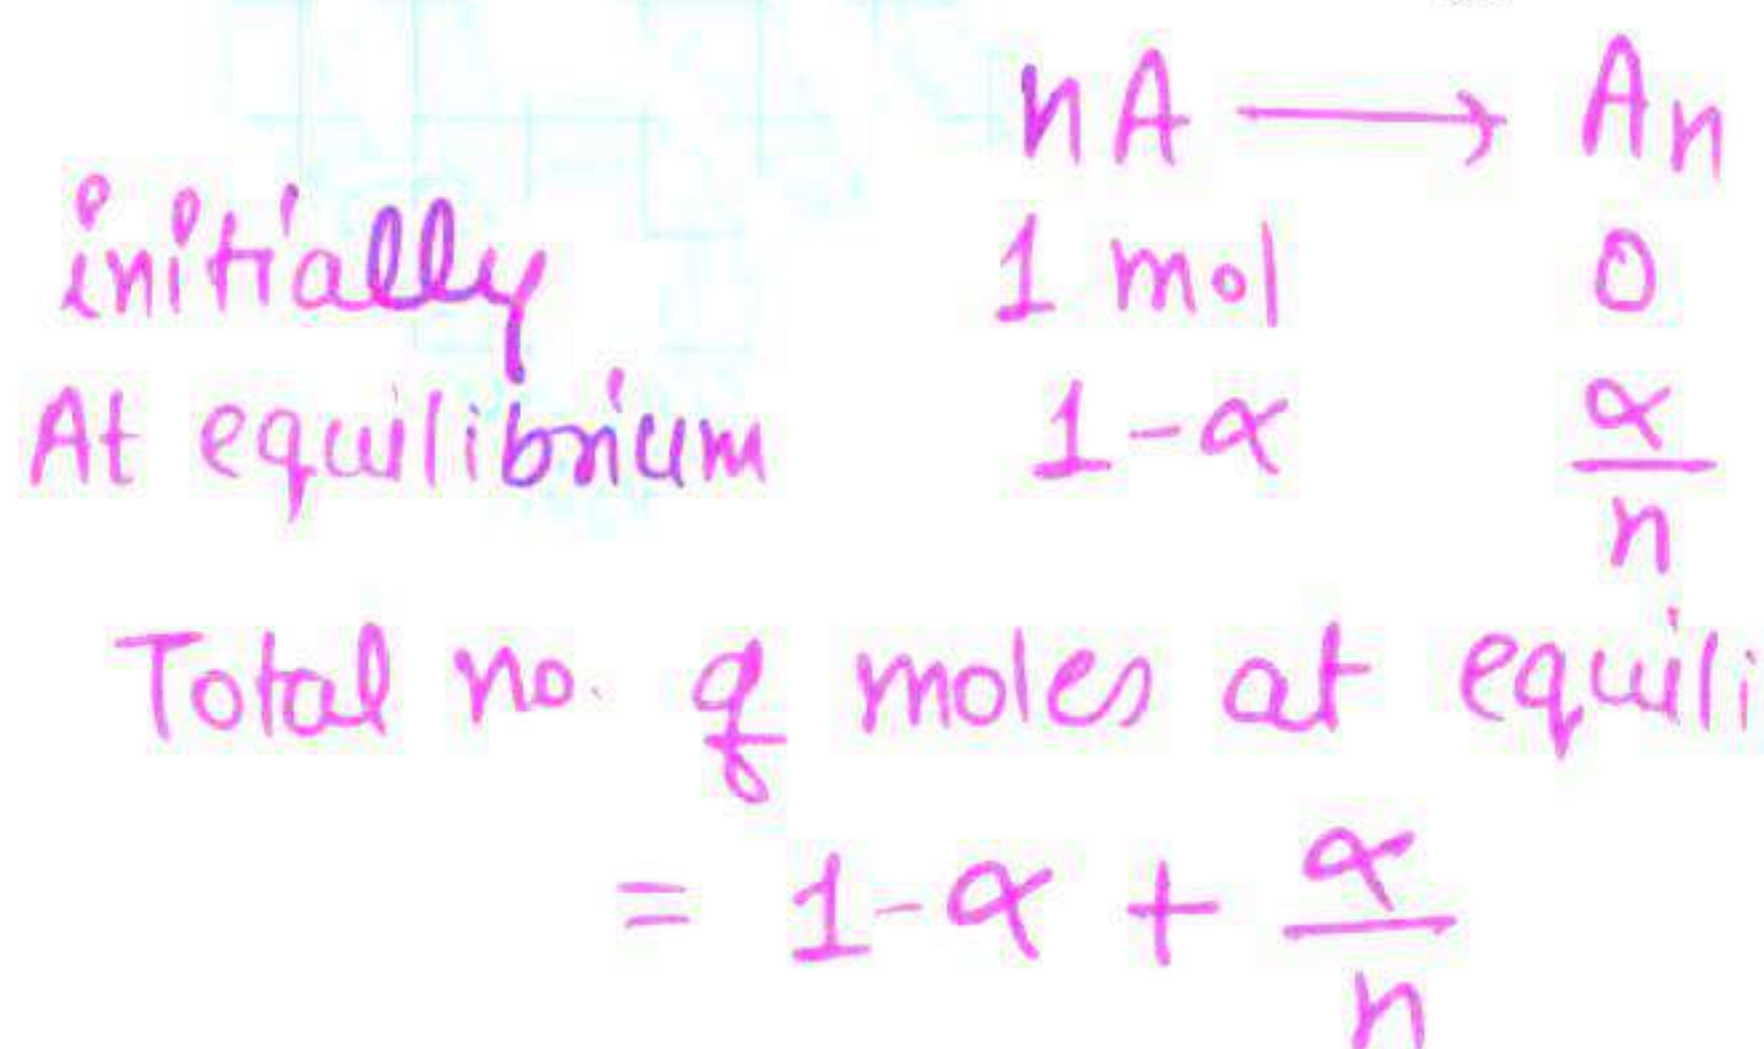 nA ⟶ An
initially 1 mol 0
At equilibrium 1-α α/n
Total no. of moles at equili
= 1-α + α/n